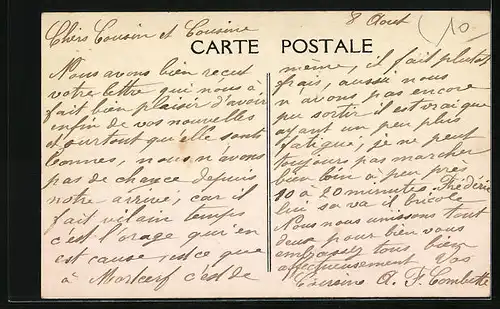 8 Aout
10
Chers Cousin et Cousine
CARTE POSTALE
Nous avons bien recut
votre lettre qui nous à
fait bien plaisir d'avoir
enfin de vos nouvelles
surtout qu'elle sont
bonnes, nous n'avons
pas de chance depuis
notre arrivé, car il
fait vilain temps
c'est l'orage qui en
est cause est ce que
à Mortcerf c'est de
même, il fait plutot
frais, aussi nous
n avons pas encore
pu sortir il est vrai que
ayant un peu plus
fatigué, je ne peut
toujours pas marcher
bien loin à peu près
10 à 20 minutes. Frédéric
lui sa va il bricole
Nous nous unissons tout
deux pour bien vous
embrasser tous bien
affectueusement Vos
Cousins A. F. Combette